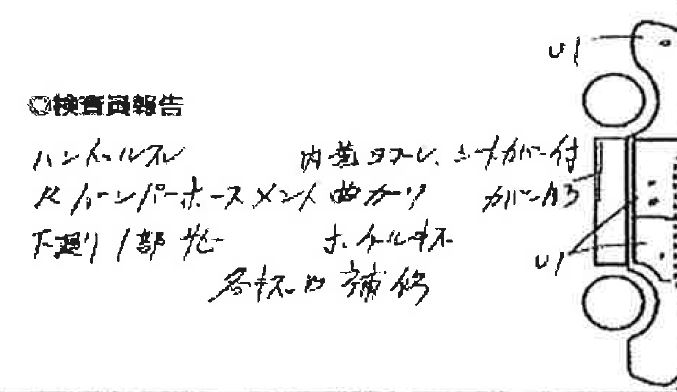 U1
◎検査員報告
ハンドルスレ 内装ヨゴレ、シートカバー付
Rバンパーホースメント曲がり カバーA3
下廻り1部サビ ホイールキズ
U1
各キズ凹補修